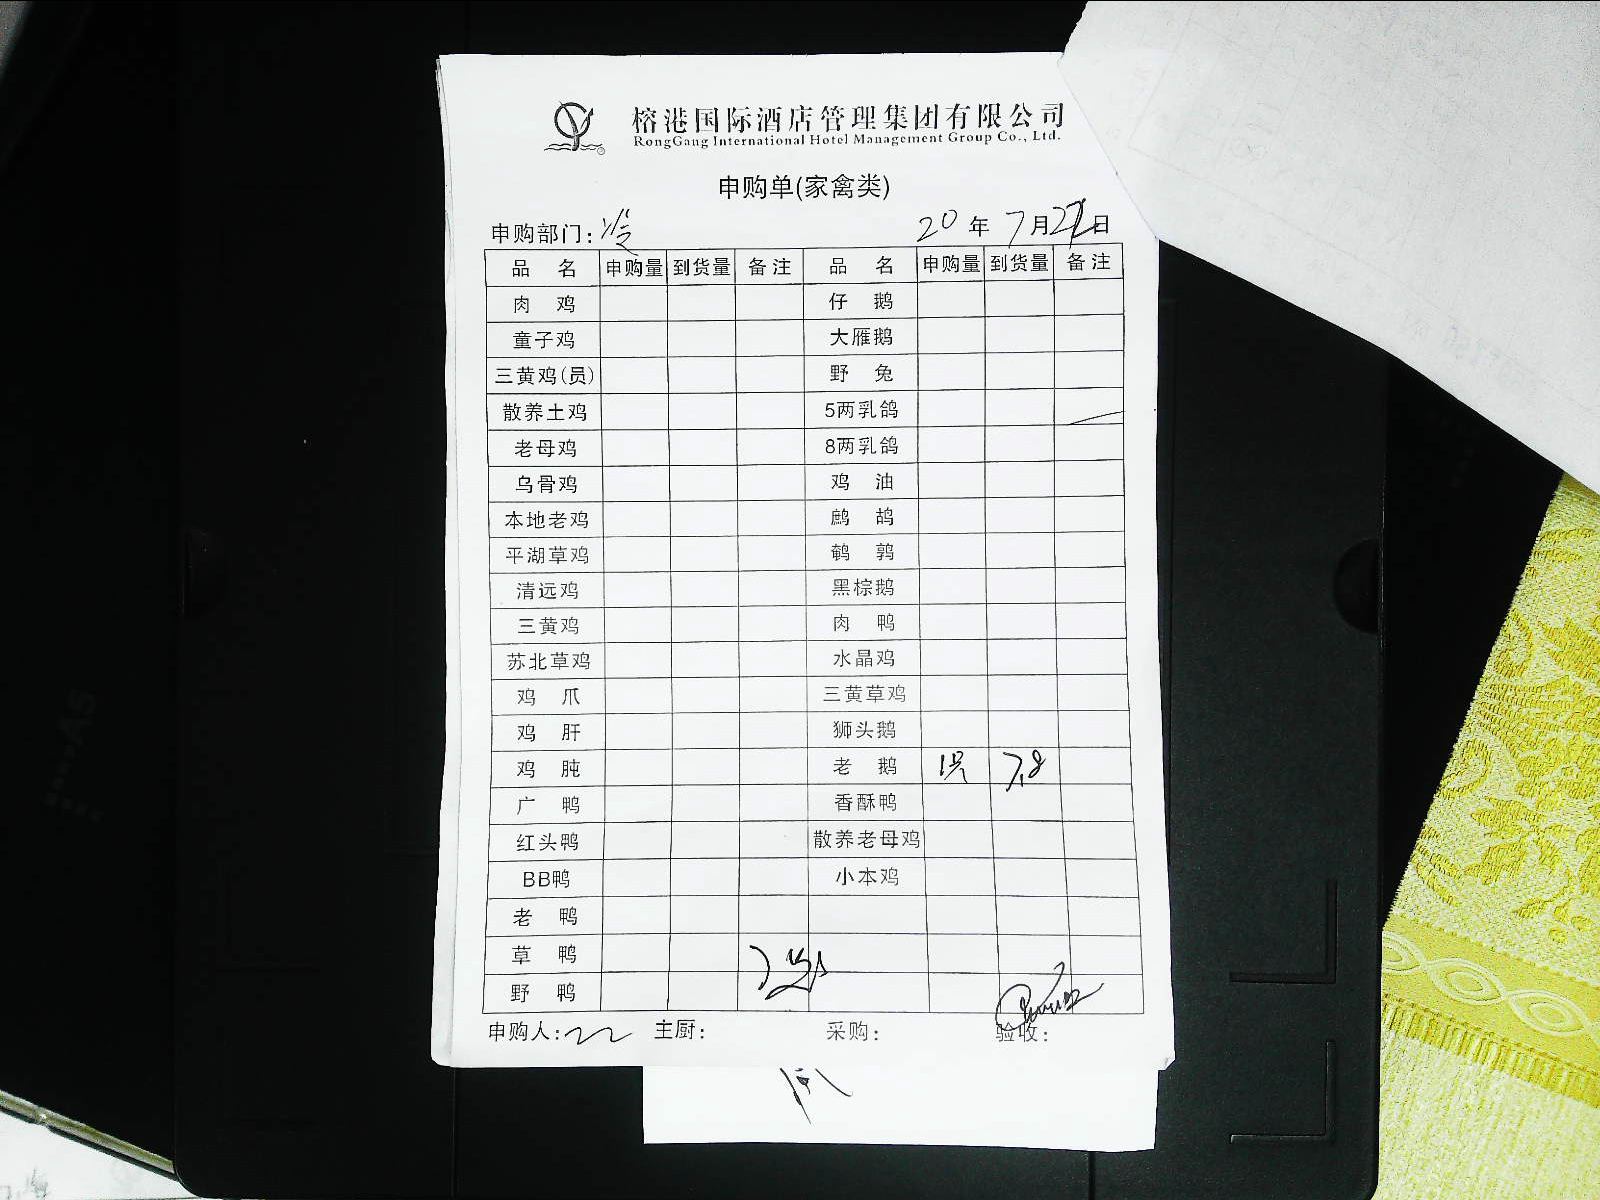 榕港国际酒店管理集团有限公司
RongGang International Hotel Management Group Co., Ltd.
申购单(家禽类)
申购部门：冷 20年7月27日
品名 申购量 到货量 备注 品名 申购量 到货量 备注
肉鸡 仔鹅
童子鸡 大雁鹅
三黄鸡(员) 野兔
散养土鸡 5两乳鸽
老母鸡 8两乳鸽
乌骨鸡 鸡油
本地老鸡 鹧鸪
平湖草鸡 鹌鹑
清远鸡 黑棕鹅
三黄鸡 肉鸭
苏北草鸡 水晶鸡
鸡爪 三黄草鸡
鸡肝 狮头鹅
鸡肫 老鹅 1只 7.8
广鸭 香酥鸭
红头鸭 散养老母鸡
BB鸭 小本鸡
老鸭
草鸭
野鸭
申购人： 主厨： 采购： 验收：